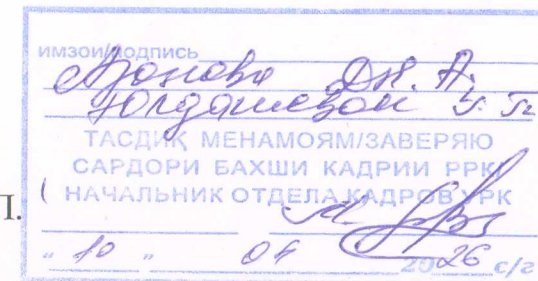 ИМЗОИ/ПОДПИСЬ
Аронова Дж. А.
Юлдашевой У. П.
ТАСДИҚ МЕНАМОЯМ/ЗАВЕРЯЮ
САРДОРИ БАХШИ КАДРИИ РРК
НАЧАЛЬНИК ОТДЕЛА КАДРОВ УРК
П.
" 10 " 04 2026 с/г